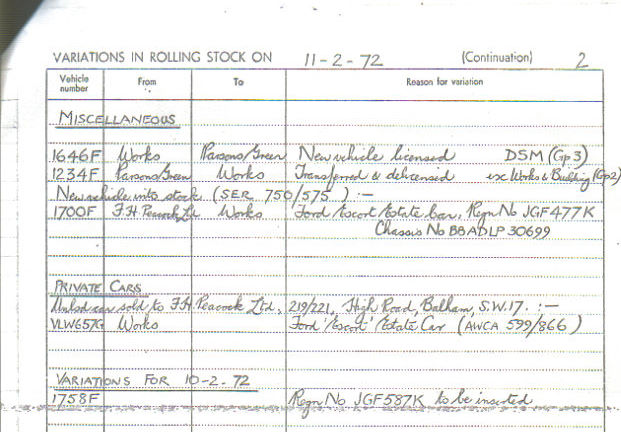 VARIATIONS IN ROLLING STOCK ON 11-2-72 (Continuation) 2
Vehicle number From To Reason for variation
MISCELLANEOUS
1646F Works Parsons Green New vehicle licensed DSM (Gp 3)
1234F Parsons Green Works Transferred & delicensed exc Works & Building (Gp2)
New vehicle into stock (SER 750/575 ) :-
1700F F.H Peacock Ltd Works Ford 'Escort' Estate Car, Regn No JGF 477K
Chassis No BBADLP 30699
PRIVATE CARS
Unlsd car sold to F.H Peacock Ltd, 219/221, High Road, Balham, S.W.17. :-
VLW657G Works Ford 'Escort' Estate Car (AWCA 599/866)
VARIATIONS FOR 10-2-72
1758F Regn No JGF587K to be inserted